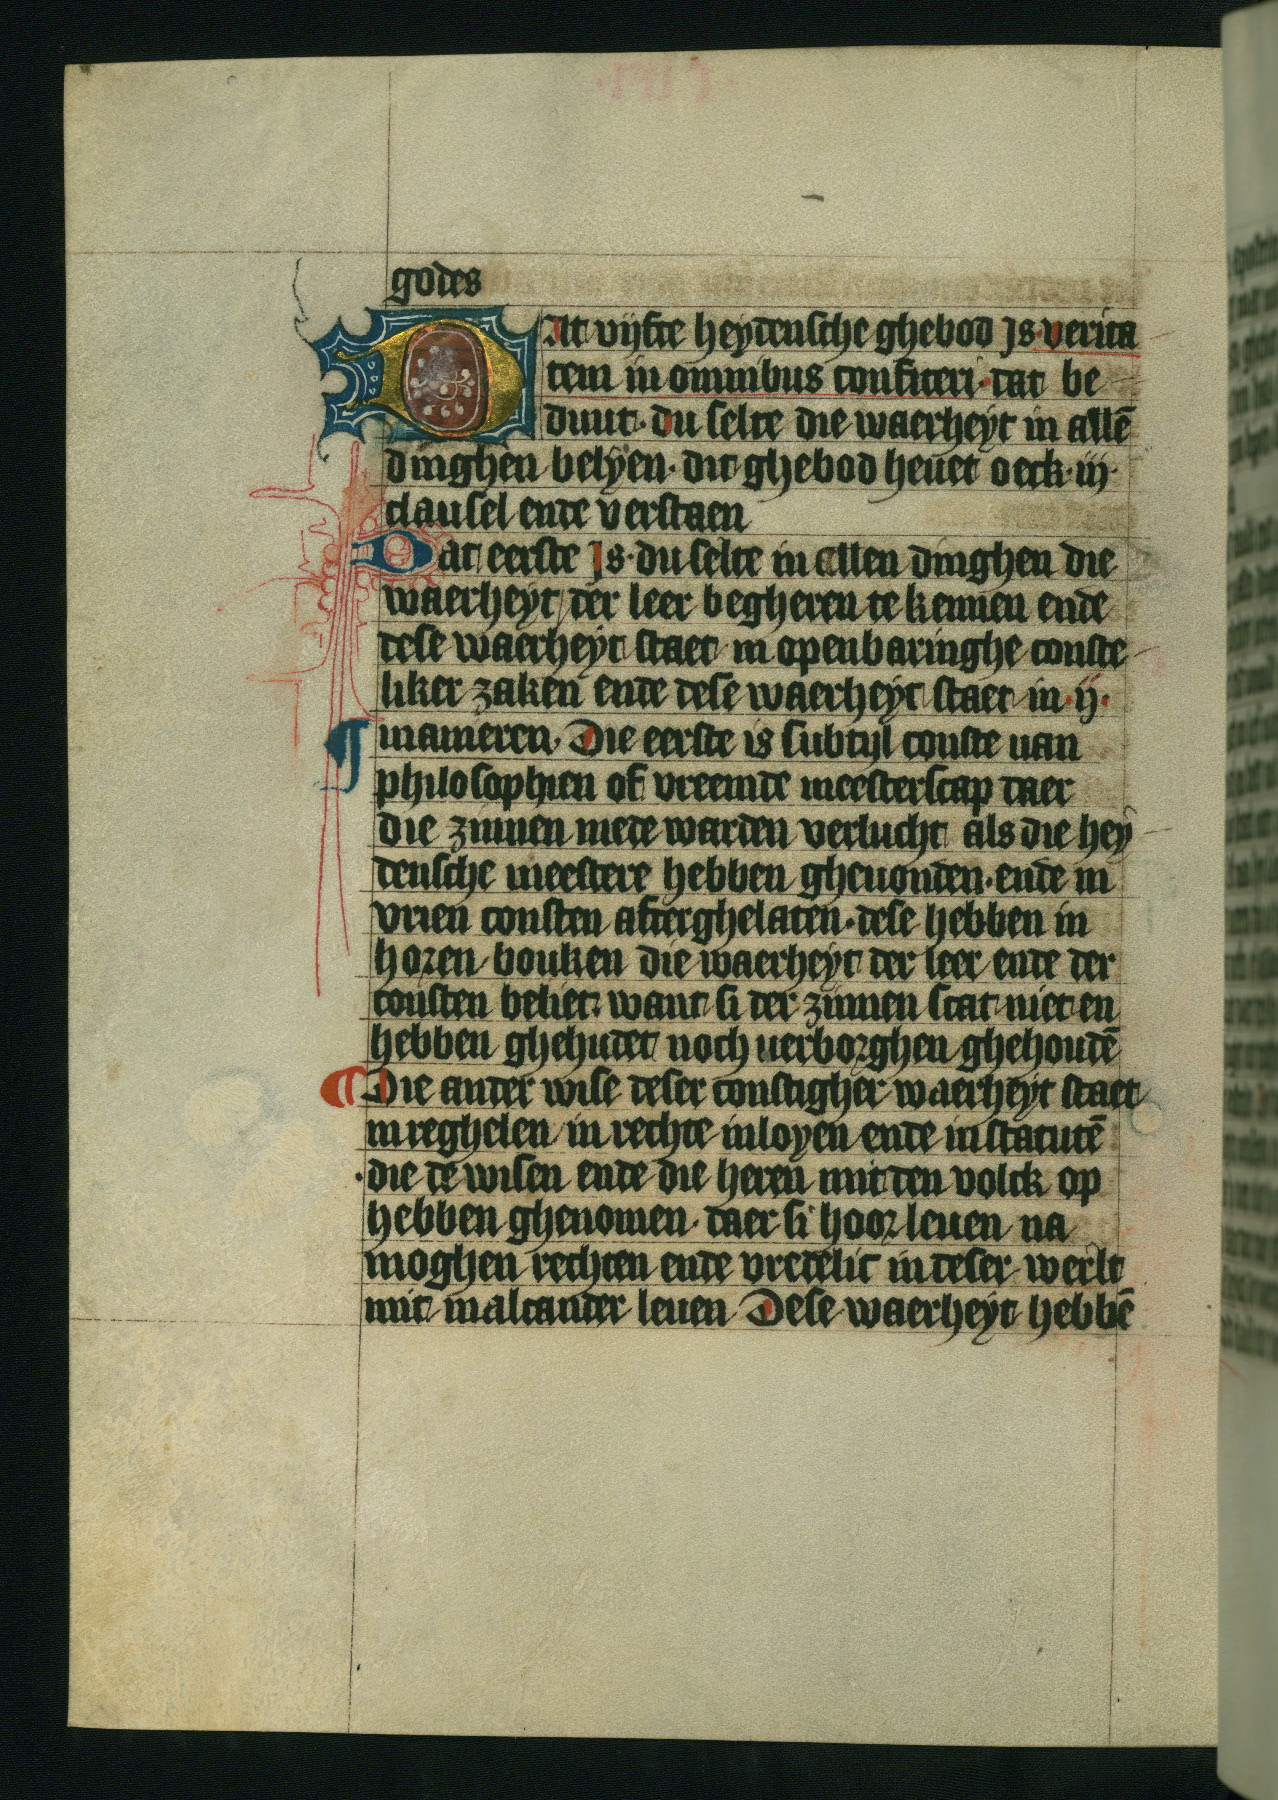 godes
DAt vijfte heydensche ghebod Js verita
tem in omnibus confiteri · dat be
duut · du selte die waerheyt in allē
dinghen belyen · dit ghebod heuet oeck · iij ·
clausel ende verstaen
Dat eerste Js · du selte in allen dinghen die
waerheyt der leer begheren te kennen ende
dese waerheyt staet in openbaringhe conste
liker zaken ende dese waerheyt staet in · ij ·
manieren · Die eerste is subtijl conste uan
philosophien of vreemde meesterscap daer
die zinnen mede warden verlucht als die hey
densche meestere hebben gheuonden · ende in
vrien consten afterghelaten · dese hebben in
horen bouken die waerheyt der leer ende der
consten beliet · want si der zinnen scat niet en
hebben ghehudet noch uerborghen ghehoudē
Die ander wise deser constigher waerheyt staet
in reghelen in rechte in loyen ende in statutē
· die de wisen ende die heren mit den volck op
hebben ghenomen · daer si hoor leuen na
moghen rechten ende vredelic in deser werlt
mit malcander leuen Dese waerheyt hebbē